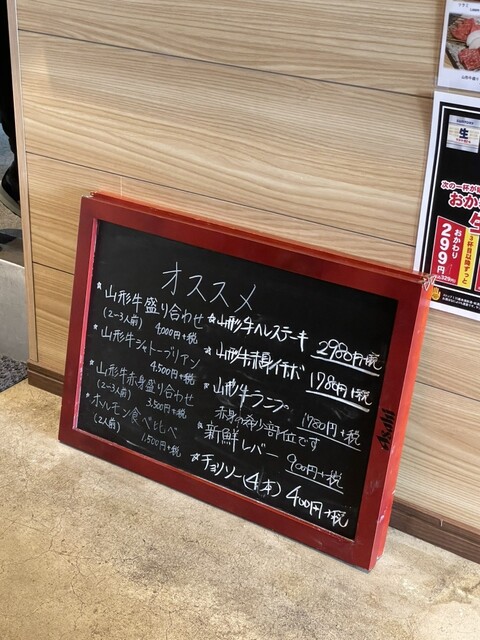 オススメ
*山形牛盛り合わせ
(2~3人前) 4,000円+税
*山形牛シャトーブリアン
4,500円+税
*山形牛赤身盛り合わせ
(2~3人前) 3,500円+税
*ホルモン食べ比べ
(2人前) 1,500円+税
☆山形牛ヘレステーキ 2980円+税
☆山形牛赤身イチボ 1780円+税
☆山形牛ランプ 1780円+税
赤身の希少部位です
☆新鮮レバー 900円+税
☆チョリソー(4本) 400円+税
Asahi
生
次の一杯が
おか
おかわり
299円
3杯目以降ずっと